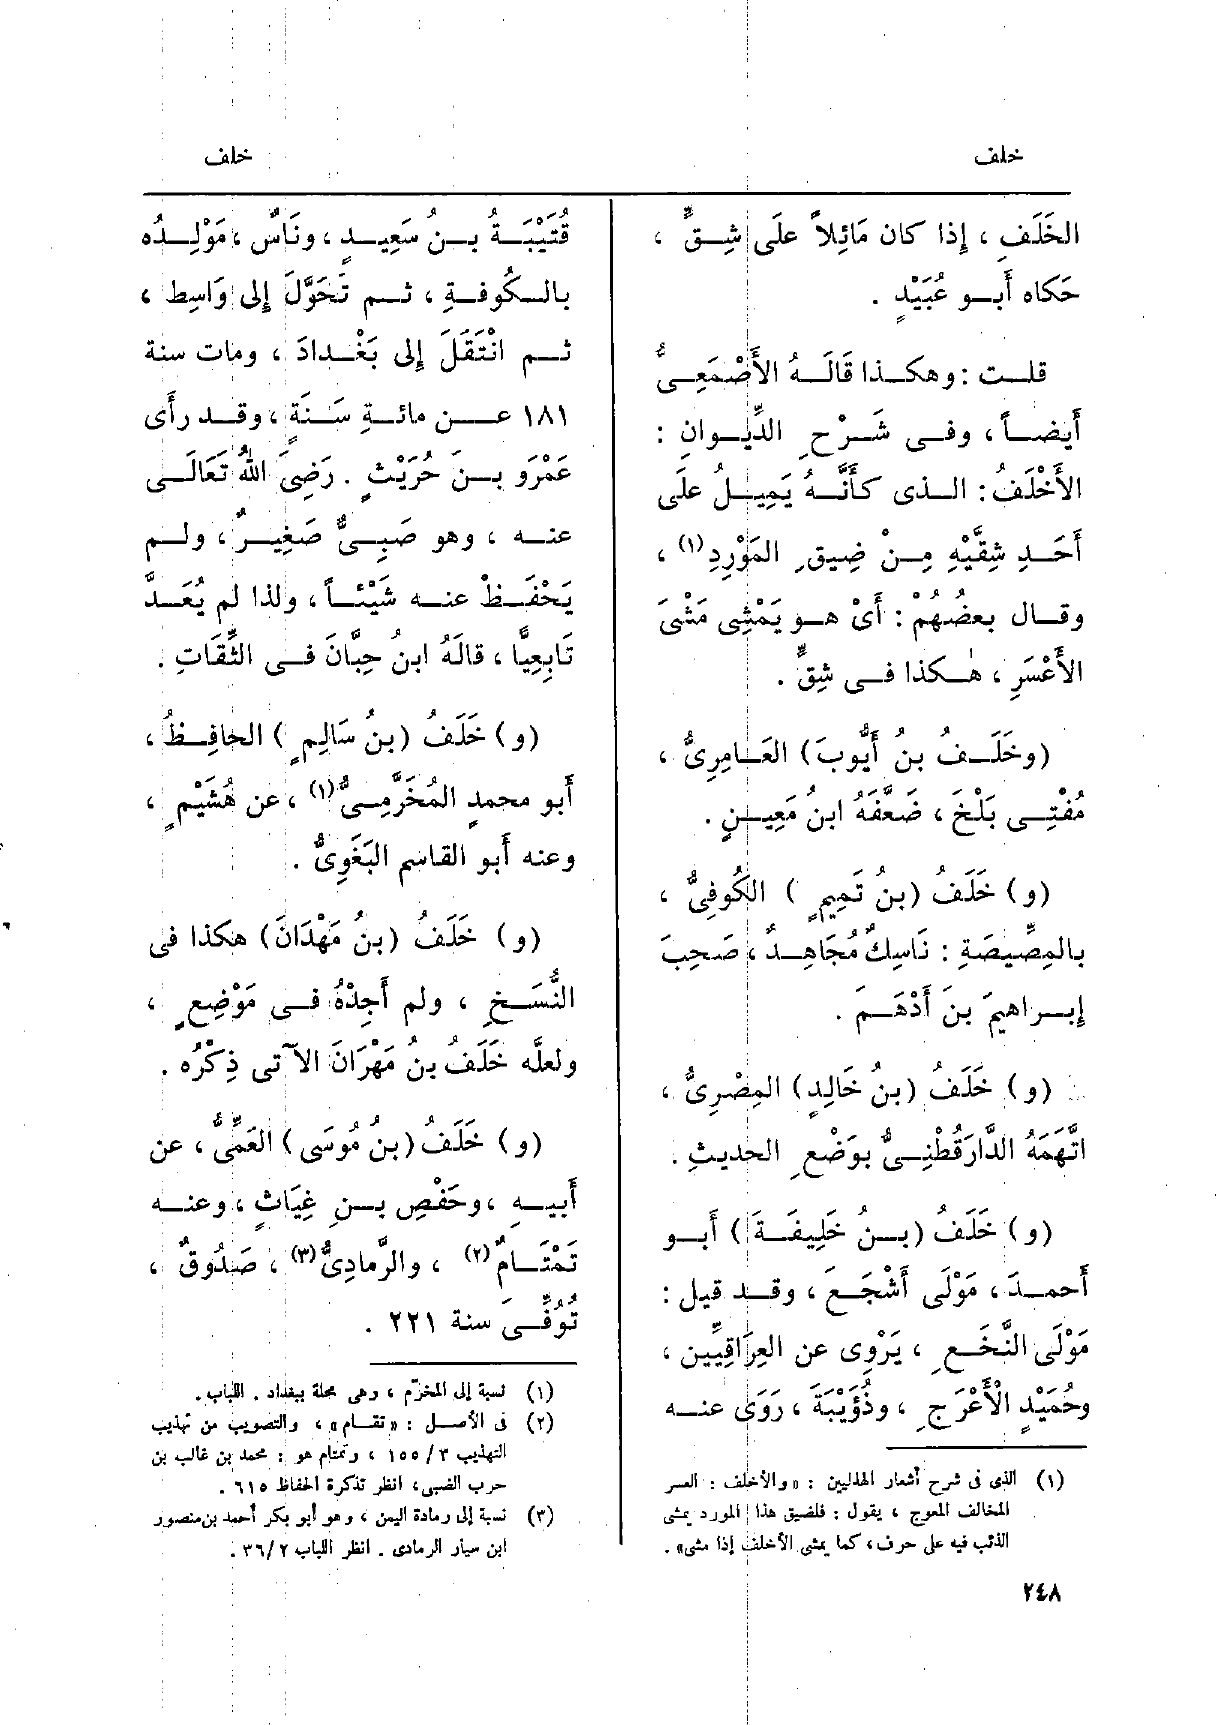 خلف
خلف
الخَلَفِ ، إذا كان مَائِلاً على شِقٍّ ،
حَكاه أَبو عُبَيْدٍ .
قلت : وهكذا قَالَهُ الأَصْمَعِىُّ
أَيضاً ، وفى شَرْحِ الدِّيوانِ :
الأَخْلَفُ : الذى كَأَنَّهُ يَمِيلُ على
أَحَدِ شِقَّيْهِ مِنْ ضِيقِ المَوْرِدِ (١) ،
وقال بعضُهُمْ : أَىْ هو يَمْشِى مَشْىَ
الأَعْسَرِ ، هٰكذا فى شِقٍّ .
(وخَلَفُ بنُ أَيُّوبَ) العَامِرِىُّ ،
مُفْتِى بَلْخَ ، ضَعَّفَهُ ابنُ مَعِينٍ .
(و) خَلَفُ (بنُ تَمِيمٍ) الكُوفِىُّ ،
بالمِصِّيصَةِ : نَاسِكٌ مُجَاهِدٌ ، صَحِبَ
إبراهيمَ بنَ أَدْهَمَ .
(و) خَلَفُ (بنُ خَالِدٍ) المِصْرِىُّ ،
اتَّهَمَهُ الدَّارَقُطْنِىُّ بوَضْعِ الحديثِ .
(و) خَلَفُ (بنُ خَلِيفَةَ) أَبو
أَحمدَ ، مَوْلَى أَشْجَعَ ، وقد قيل :
مَوْلَى النَّخَعِ ، يَرْوِى عن العِرَاقِيِّين ،
وحُمَيْدٍ الْأَعْرَجِ ، وذُؤَيْبَةَ ، رَوَى عنه
(١) الذى فى شرح أشعار الهذليين : «والأخلف : العسر
المخالف المعوج ، يقول : فلضيق هذا المورد يمشى
الذئب فيه على حرف، كما يمشى الأخلف إذا مشى» .
قُتَيْبَةُ بنُ سَعِيدٍ ، ونَاسٌ ، مَوْلِدُه
بالكُوفةِ ، ثم تَحَوَّلَ إلى وَاسِط ،
ثم انْتَقَلَ إلى بَغْدادَ ، ومات سنة
١٨١ عن مائةِ سَنَةٍ ، وقد رأَى
عَمْرَو بنَ حُرَيْثٍ . رَضِىَ اللهُ تَعَالَى
عنه ، وهو صَبِىٌّ صَغِيرٌ ، ولم
يَحْفَظْ عنه شَيْئاً ، ولذا لم يُعَدَّ
تَابِعِيًّا ، قالَهُ ابنُ حِبَّانَ فى الثِّقَاتِ .
(و) خَلَفُ (بنُ سَالِمٍ) الحافِظُ ،
أَبو محمدٍ المُخَرَّمِىُّ (١) ، عن هُشَيْمٍ ،
وعنه أَبو القاسم البَغَوِىُّ .
(و) خَلَفُ (بنُ مَهْدَانَ) هكذا فى
النُّسَخِ ، ولم أَجِدْهُ فى مَوْضِعٍ ،
ولعلَّه خَلَفُ بنُ مَهْرَانَ الآتى ذِكْرُه .
(و) خَلَفُ (بنُ مُوسَى) العَمِّىُّ ، عن
أَبيهِ ، وحَفْصِ بنِ غِيَاثٍ ، وعنه
تَمْتَامٌ (٢) ، والرَّمادِىُّ (٣) ، صَدُوقٌ ،
تُوُفِّىَ سنة ٢٢١ .
(١) نسبة إلى المخرّم ، وهى محلة ببغداد . اللباب .
(٢) فى الأصل : «تقام» ، والتصويب من تهذيب
التهذيب ٣/ ١٥٥ ، وتمتام هو : محمد بن غالب بن
حرب الضبى، انظر تذكرة الحفاظ ٦١٥ .
(٣) نسبة إلى رمادة اليمن ، وهو أبو بكر أحمد بن منصور
ابن سيار الرمادى . انظر اللباب ٣٦/٢ .
٢٤٨